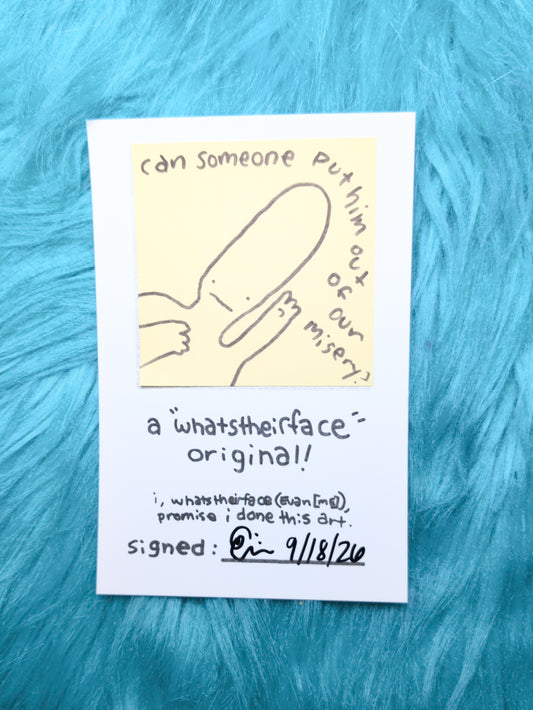 can someone put him out of our misery?
a "whatstheirface"
original!
i, whatstheirface (Evan [ME]),
promise i done this art.
signed: 9/18/26